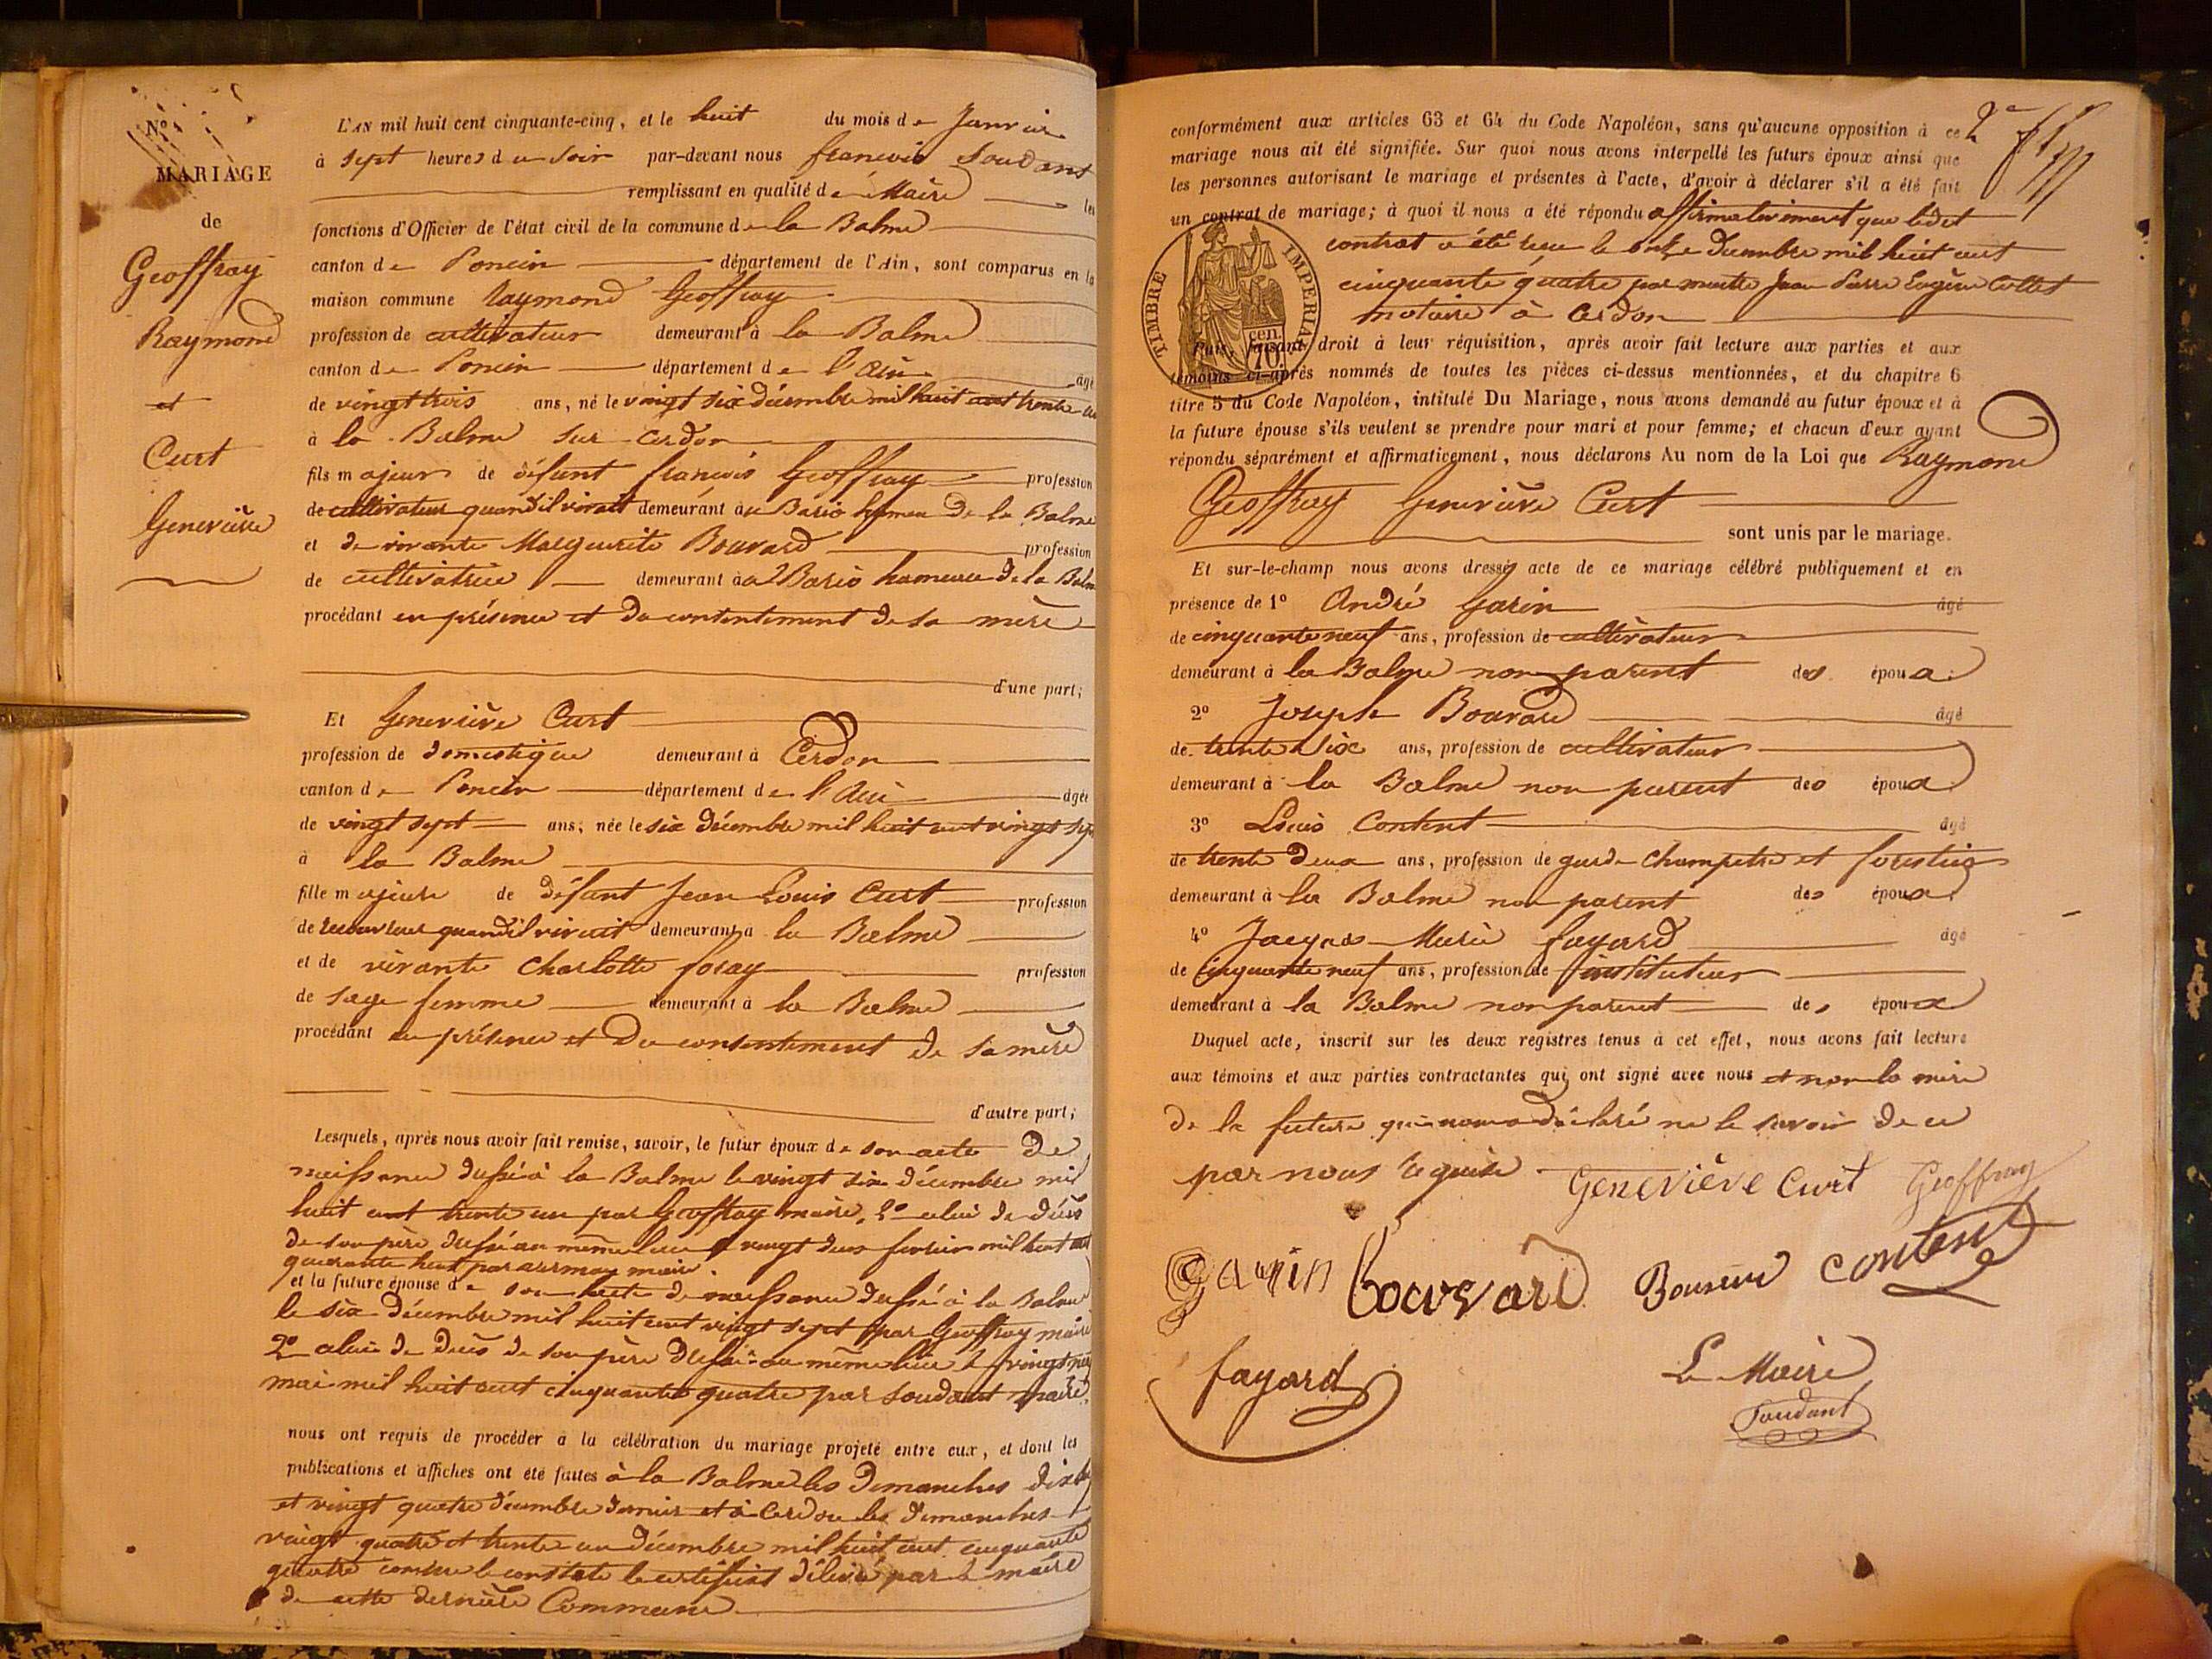 Nº
MARIAGE
de
Geoffray
Raymond
et
Curt
Geneviève
L'AN mil huit cent cinquante-cinq, et le huit du mois de Janvier
à sept heures du soir par-devant nous françois Soudant
remplissant en qualité de Maire les
fonctions d'Officier de l'état civil de la commune de la Balme
canton de Poncin département de l'Ain, sont comparus en la
maison commune Raymond Geoffray
profession de cultivateur demeurant à la Balme
canton de Poncin département de l'Ain âgé
de vingt trois ans, né le vingt six décembre mil huit cent trente un
à la Balme sur Cerdon
fils majeur de défunt françois Geoffray profession
de cultivateur quand il vivait demeurant au hameau de la Balme
et de vivante Marguerite Bouvard profession
de cultivatrice demeurant au hameau de la Balme
procédant en présence et du consentement de sa mère
d'une part;
Et Geneviève Curt
profession de domestique demeurant à Cerdon
canton de Poncin département de l'Ain âgée
de vingt sept ans, née le six décembre mil huit cent vingt sept
à la Balme
fille majeure de défunt Jean Louis Curt profession
de quand il vivait demeurant à la Balme
et de vivante Charlotte profession
de sage femme demeurant à la Balme
procédant en présence et du consentement de sa mère
d'autre part;
Lesquels, après nous avoir fait remise, savoir, le futur époux de son acte de
naissance dressé à la Balme le vingt six décembre mil
huit cent trente un par Geoffray maire, 2º celui de décès
de son père dressé au même lieu le vingt deux fevrier mil huit cent
quarante huit par maire.
et la future épouse de son acte de naissance dressé à la Balme
le six décembre mil huit cent vingt sept par Geoffray maire
2º celui de décès de son père dressé au même lieu le vingt
mai mil huit cent cinquante quatre par Soudant maire.
nous ont requis de procéder à la célébration du mariage projeté entre eux, et dont les
publications et affiches ont été faites à la Balme les Dimanches dix sept
et vingt quatre décembre dernier et à Cerdon les Dimanches
vingt quatre et trente un décembre mil huit cent cinquante
quatre comme le constate le certificat délivré par le maire
de cette dernière Commune
conformément aux articles 63 et 64 du Code Napoléon, sans qu'aucune opposition à ce
mariage nous ait été signifiée. Sur quoi nous avons interpellé les futurs époux ainsi que
les personnes autorisant le mariage et présentes à l'acte, d'avoir à déclarer s'il a été fait
un contrat de mariage; à quoi il nous a été répondu affirmativement que ledit
contrat a été reçu le onze décembre mil huit cent
cinquante quatre par maitre Jean Pierre Eugène Collet
notaire à Cerdon
TIMBRE IMPERIAL
cen.
70.
Puis, faisant droit à leur réquisition, après avoir fait lecture aux parties et aux
témoins ci-après nommés de toutes les pièces ci-dessus mentionnées, et du chapitre 6
titre 5 du Code Napoléon, intitulé Du Mariage, nous avons demandé au futur époux et à
la future épouse s'ils veulent se prendre pour mari et pour femme; et chacun d'eux ayant
répondu séparément et affirmativement, nous déclarons Au nom de la Loi que Raymond
Geoffray Geneviève Curt
sont unis par le mariage.
Et sur-le-champ nous avons dressé acte de ce mariage célébré publiquement et en
présence de 1º André Garin âgé
de cinquante neuf ans, profession de cultivateur
demeurant à la Balme non parent des époux.
2º Joseph Bouvard âgé
de trente six ans, profession de cultivateur
demeurant à la Balme non parent des époux
3º Louis Content âgé
de trente deux ans, profession de garde champetre et forestier
demeurant à la Balme non parent des époux
4º Jacques Marie fayard âgé
de cinquante neuf ans, profession de instituteur
demeurant à la Balme non parent des époux
Duquel acte, inscrit sur les deux registres tenus à cet effet, nous avons fait lecture
aux témoins et aux parties contractantes qui ont signé avec nous et non la mère
de la future qui nous a déclaré ne le savoir de ce
par nous requise
Geneviève Curt Geoffray
Garin Bouvard Content
fayard
Le Maire
Soudant